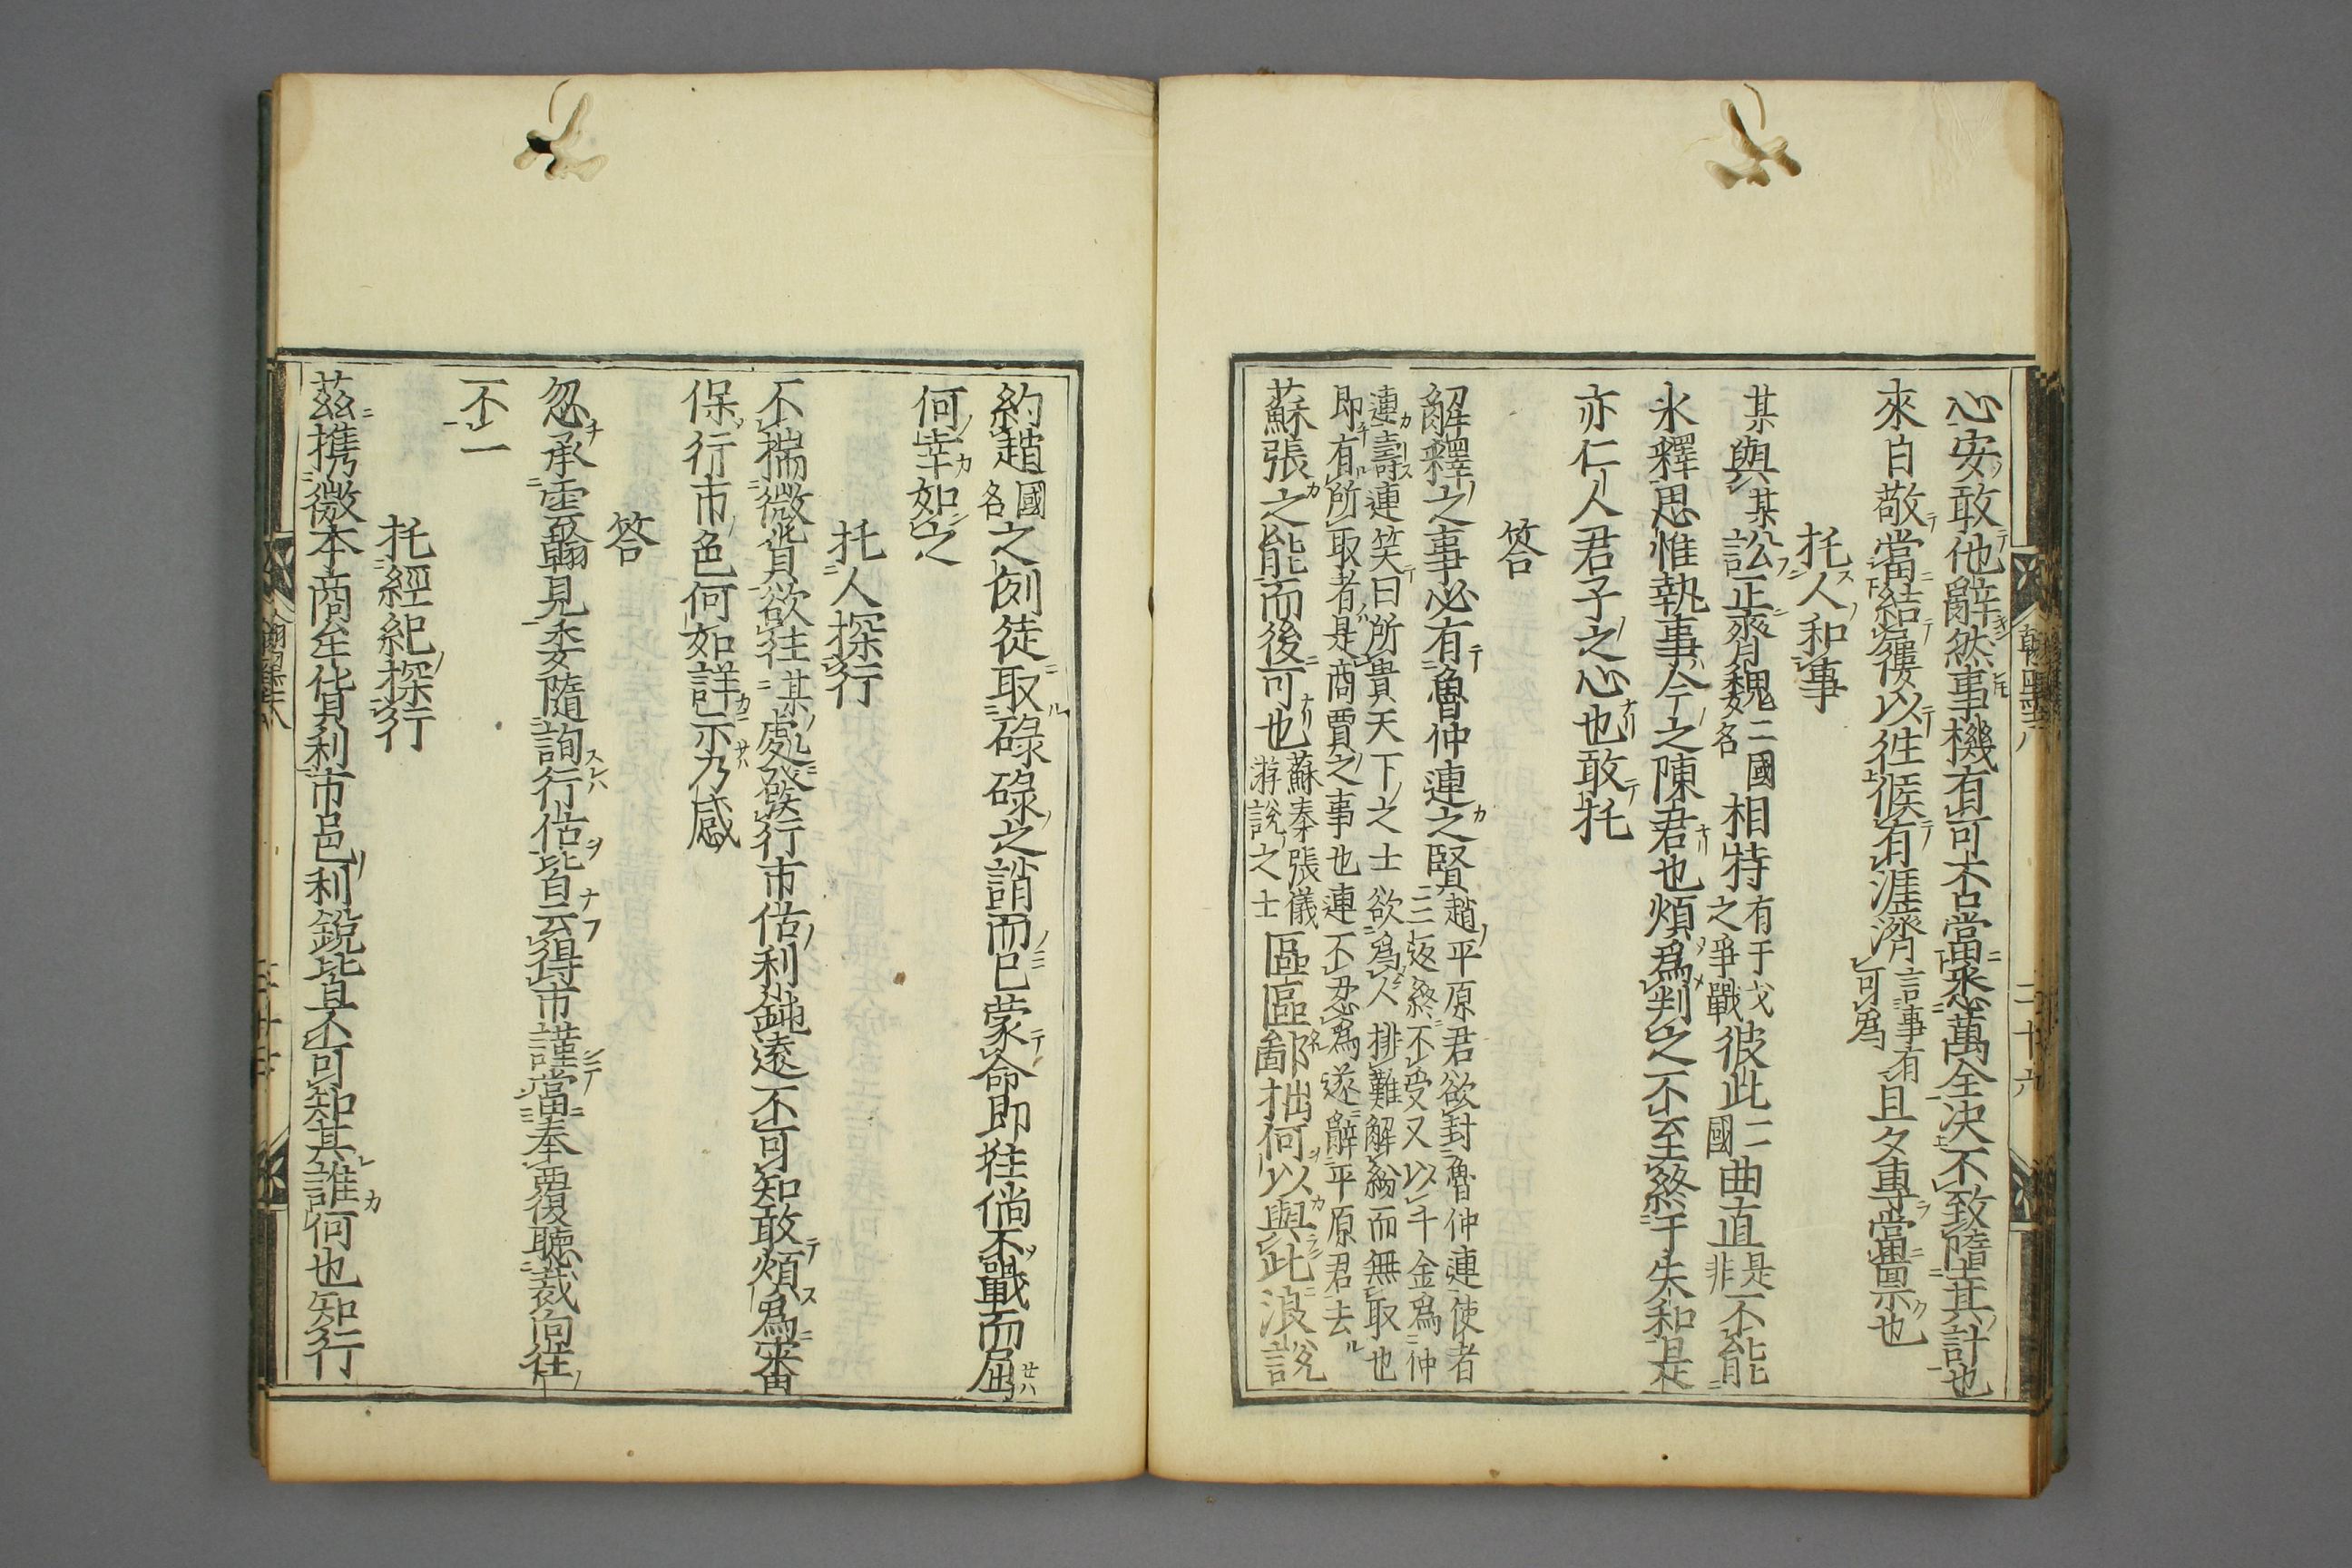 心安敢他辭然事機有可不當悉萬全决不致隳其計也
來白敬當結屨以徃候有涯濟言事有可為且夕專當稟也
托人和事
某與某訟正齊魏二國名相持有干戈之爭戰彼此二國曲直是非不能
氷釋思惟執事今之陳君也煩爲判之不至終于失和是
亦仁人君子之心也敢托
答
解釋之事必有魯仲連之賢趙平原君欲封魯仲連使者
三返終不受又以千金爲仲
連壽連笑曰所貴天下之士欲爲人排難解紛而無取也
即有所取者是商賈之事也連不忍爲遂辭平原君去
蘇張之能而後可也蘇秦張儀游說之士區區鄙拙何以與此浪說
翰墨 八
二十六
約趙國名之例徒取碌碌之誚而已蒙命即徃倘不戰而屈
何幸如之
托人探行
不揣微貲欲徃某處發行市估利鈍遠不可知敢煩爲審
保行市色何如詳示乃感
答
忽承雲翰見委隨詢行估皆白云得市謹當奉覆聴裁向徃
不一
托經紀探行
茲携微本商牟貨利市邑利鋭皆具不可知其誰何也知行